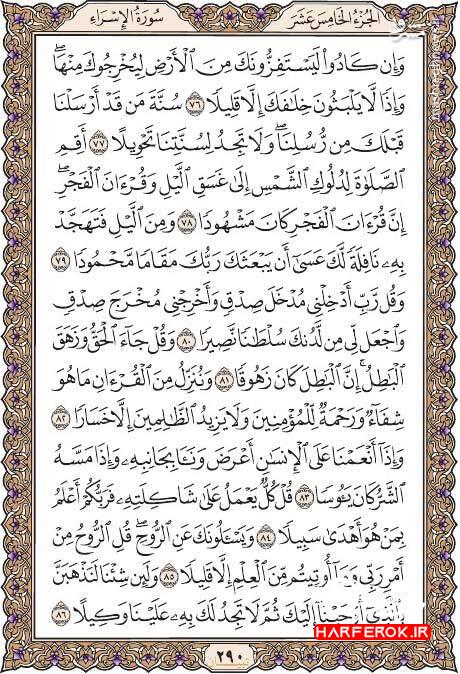 الجُزءُ الخَامِسَ عَشَرَ
سُورَةُ الإِسۡرَاءِ
وَإِن كَادُواْ لَيَسۡتَفِزُّونَكَ مِنَ ٱلۡأَرۡضِ لِيُخۡرِجُوكَ مِنۡهَاۖ
وَإِذٗا لَّا يَلۡبَثُونَ خِلَٰفَكَ إِلَّا قَلِيلٗا ٧٦ سُنَّةَ مَن قَدۡ أَرۡسَلۡنَا
قَبۡلَكَ مِن رُّسُلِنَاۖ وَلَا تَجِدُ لِسُنَّتِنَا تَحۡوِيلًا ٧٧ أَقِمِ
ٱلصَّلَوٰةَ لِدُلُوكِ ٱلشَّمۡسِ إِلَىٰ غَسَقِ ٱلَّيۡلِ وَقُرۡءَانَ ٱلۡفَجۡرِۖ
إِنَّ قُرۡءَانَ ٱلۡفَجۡرِ كَانَ مَشۡهُودٗا ٧٨ وَمِنَ ٱلَّيۡلِ فَتَهَجَّدۡ
بِهِۦ نَافِلَةٗ لَّكَ عَسَىٰٓ أَن يَبۡعَثَكَ رَبُّكَ مَقَامٗا مَّحۡمُودٗا ٧٩
وَقُل رَّبِّ أَدۡخِلۡنِي مُدۡخَلَ صِدۡقٖ وَأَخۡرِجۡنِي مُخۡرَجَ صِدۡقٖ
وَٱجۡعَل لِّي مِن لَّدُنكَ سُلۡطَٰنٗا نَّصِيرٗا ٨٠ وَقُلۡ جَآءَ ٱلۡحَقُّ وَزَهَقَ
ٱلۡبَٰطِلُۚ إِنَّ ٱلۡبَٰطِلَ كَانَ زَهُوقٗا ٨١ وَنُنَزِّلُ مِنَ ٱلۡقُرۡءَانِ مَا هُوَ
شِفَآءٞ وَرَحۡمَةٞ لِّلۡمُؤۡمِنِينَ وَلَا يَزِيدُ ٱلظَّٰلِمِينَ إِلَّا خَسَارٗا ٨٢
وَإِذَآ أَنۡعَمۡنَا عَلَى ٱلۡإِنسَٰنِ أَعۡرَضَ وَنَـَٔا بِجَانِبِهِۦ وَإِذَا مَسَّهُ
ٱلشَّرُّ كَانَ يَـُٔوسٗا ٨٣ قُلۡ كُلّٞ يَعۡمَلُ عَلَىٰ شَاكِلَتِهِۦ فَرَبُّكُمۡ أَعۡلَمُ
بِمَنۡ هُوَ أَهۡدَىٰ سَبِيلٗا ٨٤ وَيَسۡـَٔلُونَكَ عَنِ ٱلرُّوحِۖ قُلِ ٱلرُّوحُ مِنۡ
أَمۡرِ رَبِّي وَمَآ أُوتِيتُم مِّنَ ٱلۡعِلۡمِ إِلَّا قَلِيلٗا ٨٥ وَلَئِن شِئۡنَا لَنَذۡهَبَنَّ
بِٱلَّذِيٓ أَوۡحَيۡنَآ إِلَيۡكَ ثُمَّ لَا تَجِدُ لَكَ بِهِۦ عَلَيۡنَا وَكِيلًا ٨٦
٢٩٠
HARFEROK.IR